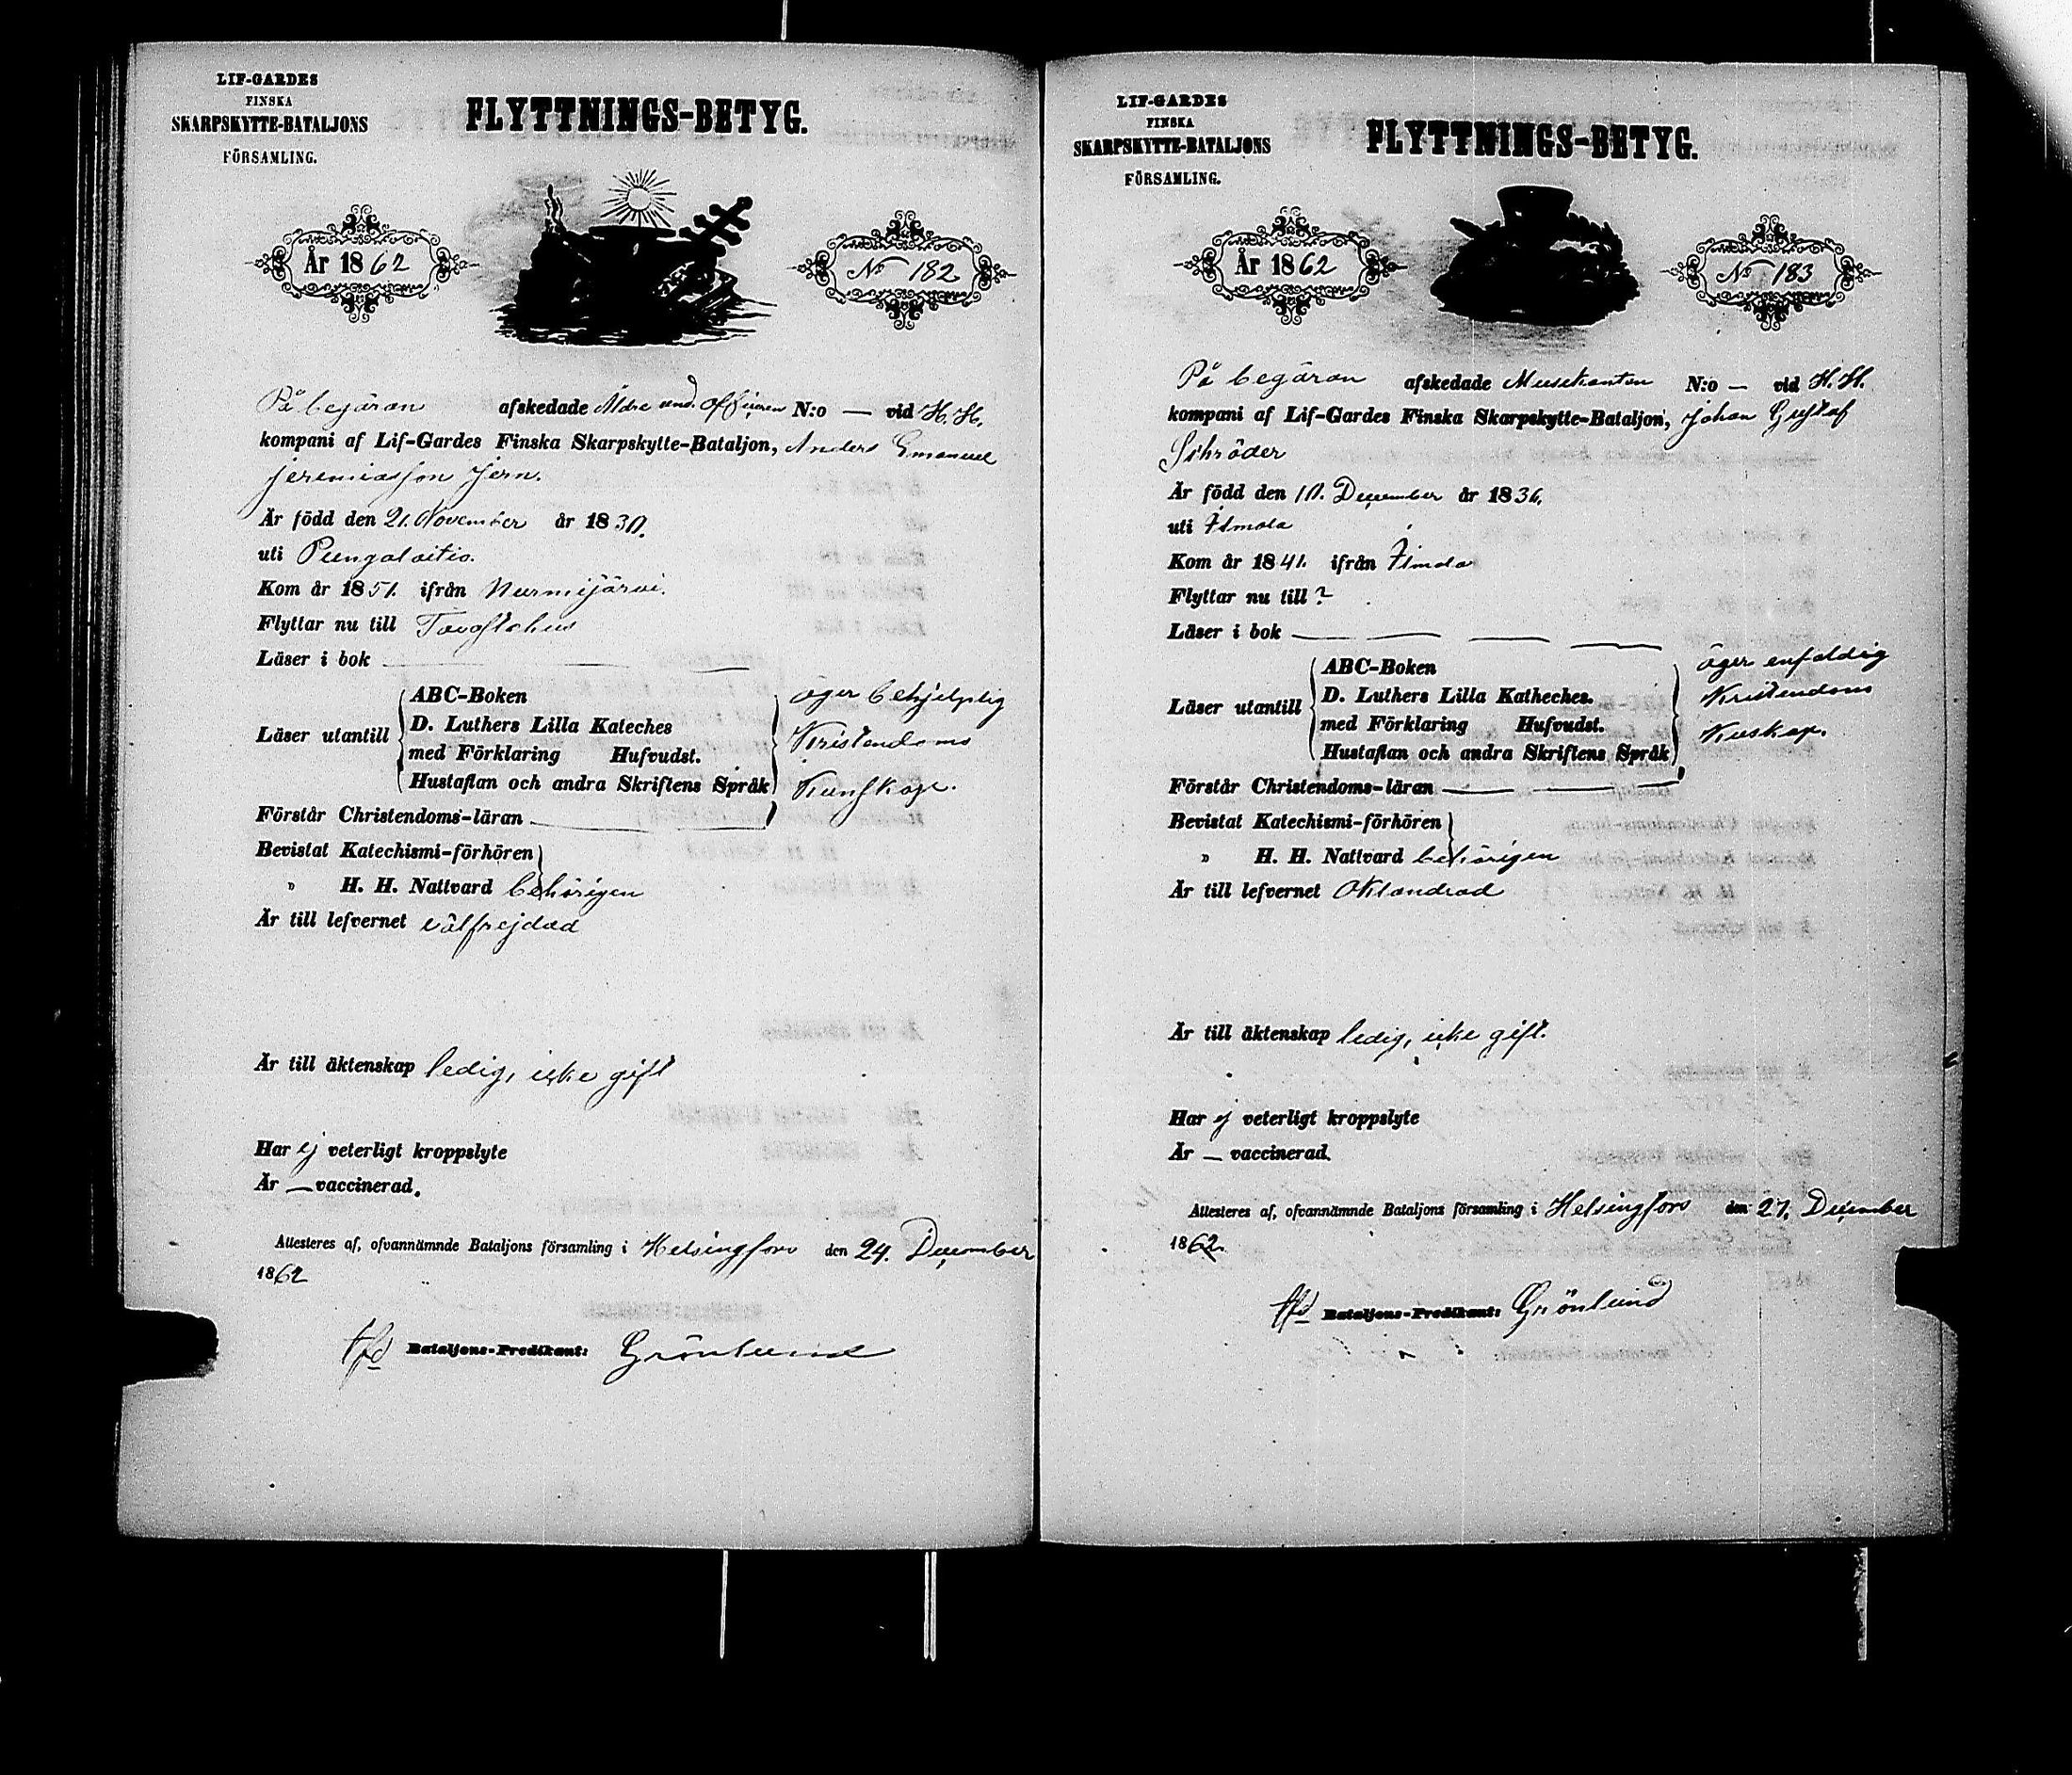 LIF-GARDES
FINSKA
SKARPSKYTTE-BATALJONS
FÖRSAMLING.
FLYTTNINGS-BETYG.
År 1862
No 182
På begäran afskedade Äldre und. officeren N:o — vid H. H.
kompani af Lif-Gardes Finska Skarpskytte-Bataljon, Anders Emanuel
Jeremiasson Jern.
Är född den 21. November år 1830.
uti Pungalaitio.
Kom år 1851. ifrån Nurmijärvi.
Flyttar nu till Tavastehus
Läser i bok
Läser utantill
ABC-Boken
D. Luthers Lilla Kateches
med Förklaring Hufvudst.
Hustaflan och andra Skriftens Språk
äger behjelplig
Kristendoms
Kunskap.
Förstår Christendoms-läran
Bevistat Katechismi-förhören
" H. H. Nattvard behörigen
Är till lefvernet välfrejdad
Är till äktenskap ledig, icke gift
Har ej veterligt kroppslyte
Är — vaccinerad.
Attesteres af, ofvannämnde Bataljons församling i Helsingfors den 24. December
1862
tfd Bataljons-Predikant: Grönlund
LIF-GARDES
FINSKA
SKARPSKYTTE-BATALJONS
FÖRSAMLING.
FLYTTNINGS-BETYG.
År 1862
No 183
På begäran afskedade Musikanten N:o — vid H. H.
kompani af Lif-Gardes Finska Skarpskytte-Bataljon, Johan Gustaf
Schröder
Är född den 10. December år 1836.
uti Ilmola
Kom år 1841. ifrån Ilmola
Flyttar nu till ?
Läser i bok
Läser utantill
ABC-Boken
D. Luthers Lilla Katheches.
med Förklaring Hufvudst.
Hustaflan och andra Skriftens Språk
äger enfaldig
Kristendoms
Kuskap.
Förstår Christendoms-läran
Bevistat Katechismi-förhören
" H. H. Nattvard behörigen
Är till lefvernet oklandrad
Är till äktenskap ledig, icke gift.
Har ej veterligt kroppslyte
Är — vaccinerad.
Attesteres af, ofvannämnde Bataljons församling i Helsingfors den 27. December
1862.
tfd Bataljons-Predikant: Grönlund